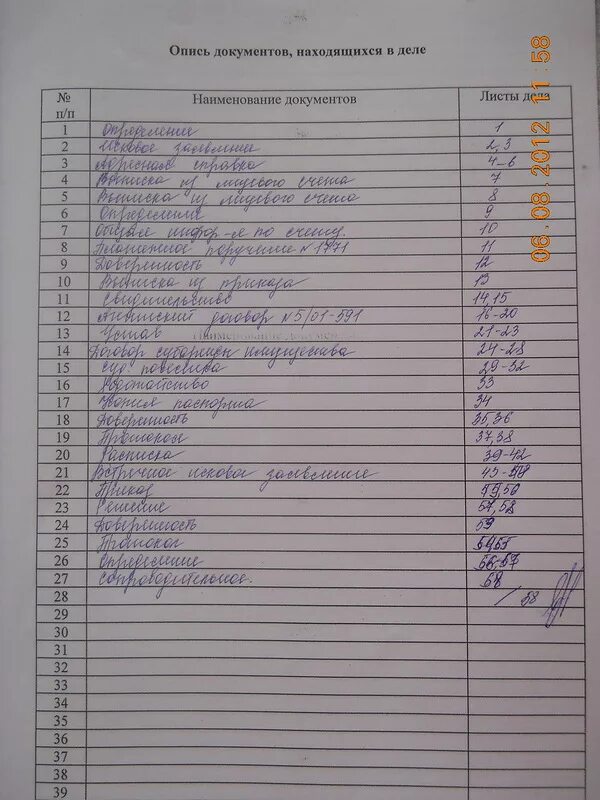 Опись документов, находящихся в деле
06.08.2012 11:58
№ п/п Наименование документов Листы дела
1 Определение 1
2 Исковое заявление 2,3
3 Адресная справка 4-6
4 Выписка из лицевого счета 7
5 Выписка из лицевого счета 8
6 Определение 9
7 Общая информ-я по счету 10
8 Платежное поручение №1771 11
9 Доверенность 12
10 Выписка из приказа 13
11 Свидетельство 14,15
12 Агентский договор №5/01-591 16-20
13 Устав 21-23
Наименование документов
14 Договор имущества 24-28
15 Суд. повестка 29-32
16 Ходатайство 33
17 Копия паспорта 34
18 Доверенность 35,36
19 Протокол 37,38
20 Расписка 39-42
21 Встречное исковое заявление
22 Приказ
23 Решение 57,58
24 Доверенность 59
25 Протокол
26 Определение
27 Сопроводительное. 68
28 / 58
29
30
31
32
33
34
35
36
37
38
39